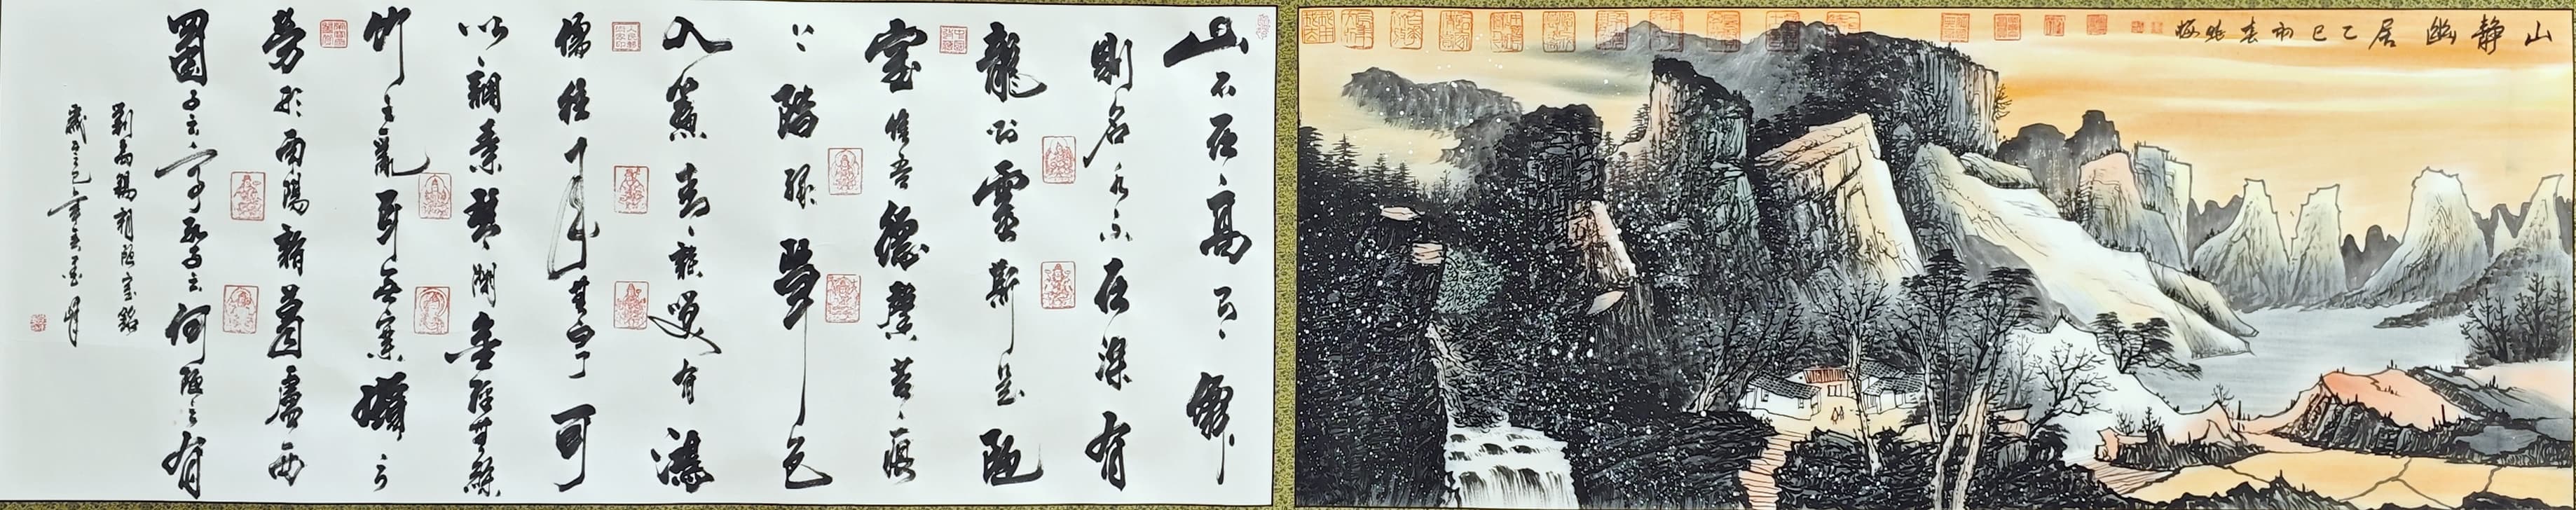 山静幽居乙巳
山不在高有僊
則名水不在深有
龍則靈斯是陋
室惟吾德馨苔痕
上階綠草色
入簾青談笑有鴻
儒往來無白丁可
以調素琴閱金經無絲
竹之亂耳無案牘之
勞形南陽諸葛廬西
蜀子云亭孔子云何陋之有
劉禹錫陋室銘
歲乙巳年